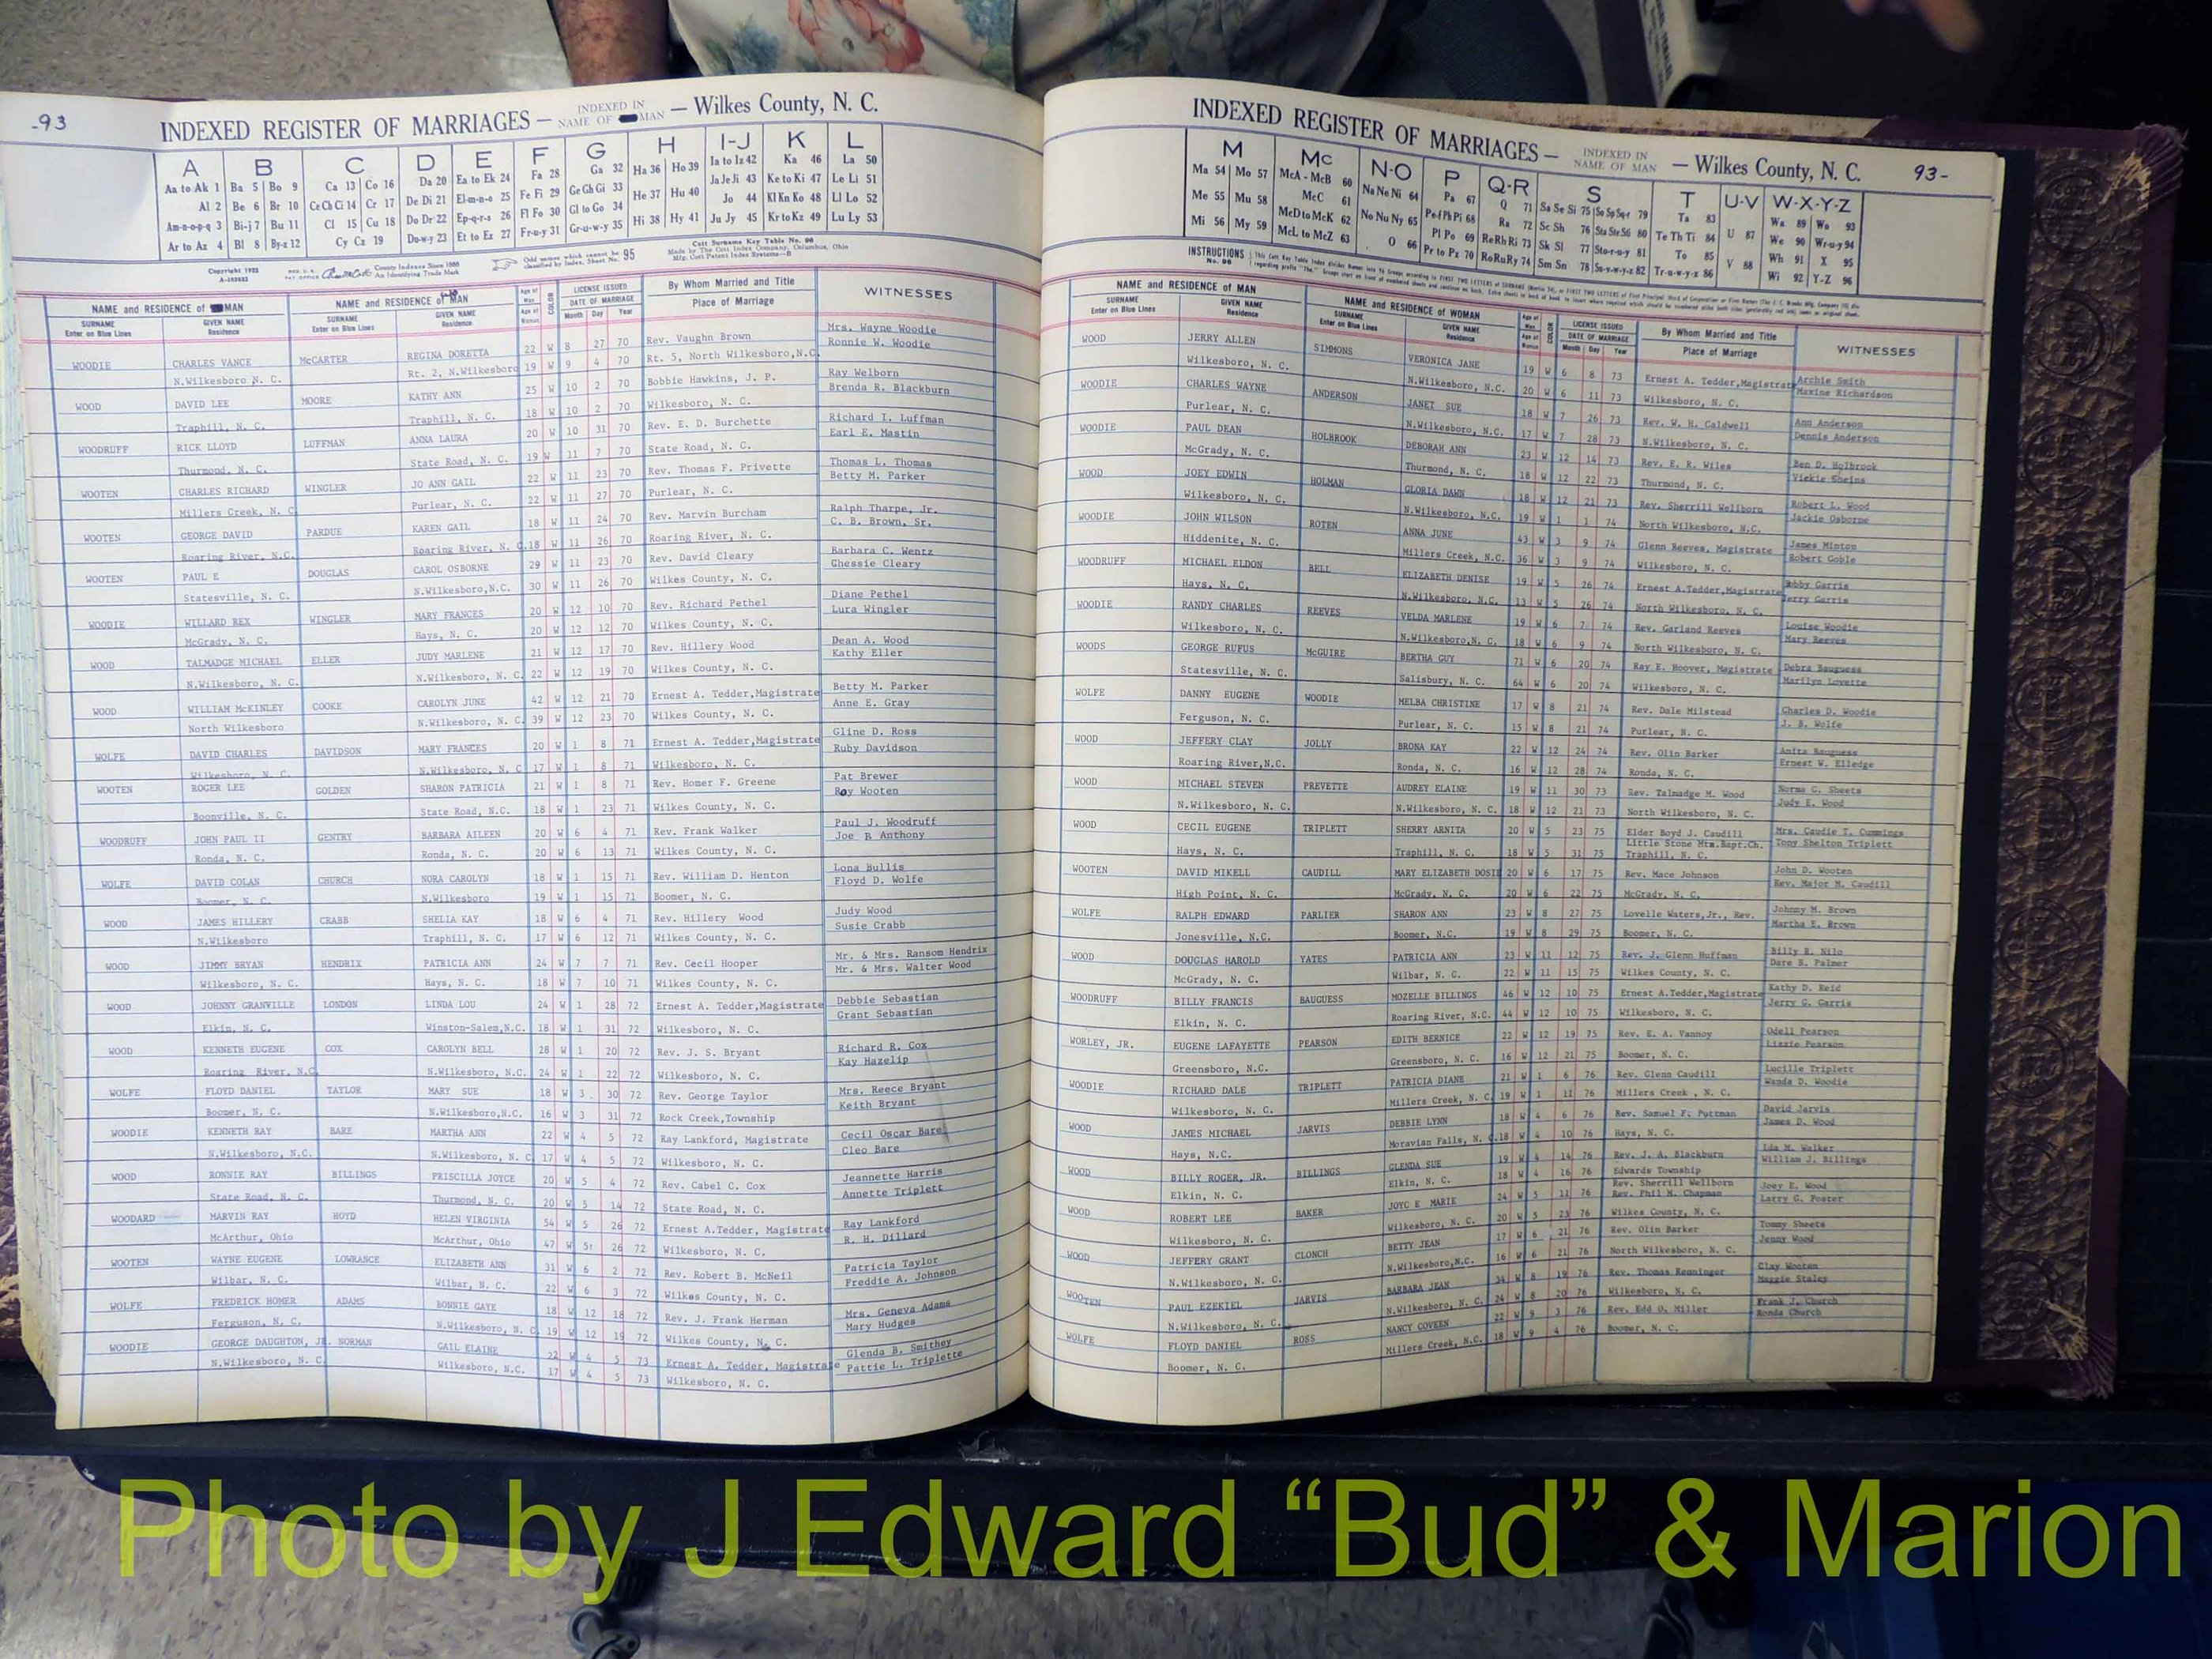 -93
INDEXED REGISTER OF MARRIAGES — INDEXED IN NAME OF MAN — Wilkes County, N. C.
A B C D E F G H I-J K L
Aa to Ak 1 Ba 5 Bo 9 Ca 13 Co 16 Da 20 Ea to Ek 24 Fa 28 Ga 32 Ha 36 Ho 39 Ia to Iz 42 Ka 46 La 50
Al 2 Be 6 Br 10 Ce Ch Ci 14 Cr 17 De Di 21 El-m-n-o 25 Fe Fi 29 Ge Gh Gi 33 He 37 Hu 40 Ja Je Ji 43 Ke to Ki 47 Le Li 51
Am-n-o-p-q 3 Bi-j 7 Bu 11 Cl 15 Cu 18 Do Dr 22 Ep-q-r-s 26 Fl Fo 30 Gl to Go 34 Hi 38 Hy 41 Jo 44 Kl Kn Ko 48 Ll Lo 52
Ar to Az 4 Bl 8 By-z 12 Cy Cz 19 Du-w-y 23 Et to Ez 27 Fr-u-y 31 Gr-u-w-y 35 Ju Jy 45 Kr to Kz 49 Lu Ly 53
NAME and RESIDENCE of MAN NAME and RESIDENCE of WOMAN COLOR LICENSE ISSUED DATE OF MARRIAGE By Whom Married and Title WITNESSES
SURNAME Enter on Blue Lines GIVEN NAME Residence SURNAME Enter on Blue Lines GIVEN NAME Residence Month Day Year Place of Marriage
WOODIE CHARLES VANCE McCARTER REGINA DORETTA 22 W 8 27 70 Rev. Vaughn Brown Mrs. Wayne Woodie
N.Wilkesboro N. C. Rt. 2, N.Wilkesboro 19 W 9 4 70 Rt. 5, North Wilkesboro,N.C. Ronnie W. Woodie
WOOD DAVID LEE MOORE KATHY ANN 25 W 10 2 70 Bobbie Hawkins, J. P. Ray Welborn
Traphill, N. C. Traphill, N. C. 18 W 10 2 70 Wilkesboro, N. C. Brenda R. Blackburn
WOODRUFF RICK LLOYD LUFFMAN ANNA LAURA 20 W 10 31 70 Rev. E. D. Burchette Richard I. Luffman
Thurmond, N. C. State Road, N. C. 19 W 11 7 70 State Road, N. C. Earl E. Mastin
WOOTEN CHARLES RICHARD WINGLER JO ANN GAIL 22 W 11 23 70 Rev. Thomas F. Privette Thomas L. Thomas
Millers Creek, N. C Purlear, N. C. 22 W 11 27 70 Purlear, N. C. Betty M. Parker
WOOTEN GEORGE DAVID PARDUE KAREN GAIL 18 W 11 24 70 Rev. Marvin Burcham Ralph Tharpe, Jr.
Roaring River, N.C. Roaring River, N. C. 18 W 11 26 70 Roaring River, N. C. C. B. Brown, Sr.
WOOTEN PAUL E DOUGLAS CAROL OSBORNE 29 W 11 23 70 Rev. David Cleary Barbara C. Wentz
Statesville, N. C. N.Wilkesboro,N.C. 30 W 11 26 70 Wilkes County, N. C. Ghessie Cleary
WOODIE WILLARD REX WINGLER MARY FRANCES 20 W 12 10 70 Rev. Richard Pethel Diane Pethel
McGrady, N. C. Hays, N. C. 20 W 12 12 70 Wilkes County, N. C. Lura Wingler
WOOD TALMADGE MICHAEL ELLER JUDY MARLENE 21 W 12 17 70 Rev. Hillery Wood Dean A. Wood
N.Wilkesboro, N. C. N.Wilkesboro, N. C. 22 W 12 19 70 Wilkes County, N. C. Kathy Eller
WOOD WILLIAM McKINLEY COOKE CAROLYN JUNE 42 W 12 21 70 Ernest A. Tedder,Magistrate Betty M. Parker
North Wilkesboro N.Wilkesboro, N. C. 39 W 12 23 70 Wilkes County, N. C. Anne E. Gray
WOLFE DAVID CHARLES DAVIDSON MARY FRANCES 20 W 1 8 71 Ernest A. Tedder,Magistrate Gline D. Ross
Wilkesboro, N. C. N.Wilkesboro, N. C 17 W 1 8 71 Wilkesboro, N. C. Ruby Davidson
WOOTEN ROGER LEE GOLDEN SHARON PATRICIA 21 W 1 8 71 Rev. Homer F. Greene Pat Brewer
Boonville, N. C. State Road, N.C. 18 W 1 23 71 Wilkes County, N. C. Roy Wooten
WOODRUFF JOHN PAUL II GENTRY BARBARA AILEEN 20 W 6 4 71 Rev. Frank Walker Paul J. Woodruff
Ronda, N. C. Ronda, N. C. 20 W 6 13 71 Wilkes County, N. C. Joe R Anthony
WOLFE DAVID COLAN CHURCH NORA CAROLYN 18 W 1 15 71 Rev. William D. Henton Lona Bullis
Boomer, N. C. N.Wilkesboro 19 W 1 15 71 Boomer, N. C. Floyd D. Wolfe
WOOD JAMES HILLERY CRABB SHELIA KAY 18 W 6 4 71 Rev. Hillery Wood Judy Wood
N.Wilkesboro Traphill, N. C. 17 W 6 12 71 Wilkes County, N. C. Susie Crabb
WOOD JIMMY BRYAN HENDRIX PATRICIA ANN 24 W 7 7 71 Rev. Cecil Hooper Mr. & Mrs. Ransom Hendrix
Wilkesboro, N. C. Hays, N. C. 18 W 7 10 71 Wilkes County, N. C. Mr. & Mrs. Walter Wood
WOOD JOHNNY GRANVILLE LONDON LINDA LOU 24 W 1 28 72 Ernest A. Tedder,Magistrate Debbie Sebastian
Elkin, N. C. Winston-Salem,N.C. 18 W 1 31 72 Wilkesboro, N. C. Grant Sebastian
WOOD KENNETH EUGENE COX CAROLYN BELL 28 W 1 20 72 Rev. J. S. Bryant Richard R. Cox
Roaring River, N.C. N.Wilkesboro, N.C. 24 W 1 22 72 Wilkesboro, N. C. Kay Hazelip
WOLFE FLOYD DANIEL TAYLOR MARY SUE 18 W 3. 30 72 Rev. George Taylor Mrs. Reece Bryant
Boomer, N. C. N.Wilkesboro,N.C. 16 W 3 31 72 Rock Creek,Township Keith Bryant
WOODIE KENNETH RAY BARE MARTHA ANN 22 W 4 5 72 Ray Lankford, Magistrate Cecil Oscar Bare
N.Wilkesboro, N.C. N.Wilkesboro, N. C 17 W 4 5 72 Wilkesboro, N. C. Cleo Bare
WOOD RONNIE RAY BILLINGS PRISCILLA JOYCE 20 W 5 4 72 Rev. Cabel C. Cox Jeannette Harris
State Road, N. C. Thurmond, N. C. 20 W 5 14 72 State Road, N. C. Annette Triplett
WOODARD MARVIN RAY HOYD HELEN VIRGINIA 54 W 5 26 72 Ernest A.Tedder, Magistrate Ray Lankford
McArthur, Ohio McArthur, Ohio 47 W 5 26 72 Wilkesboro, N. C. R. H. Dillard
WOOTEN WAYNE EUGENE LOWRANCE ELIZABETH ANN 31 W 6 2 72 Rev. Robert B. McNeil Patricia Taylor
Wilbar, N. C. Wilbar, N. C. 22 W 6 3 72 Wilkes County, N. C. Freddie A. Johnson
WOLFE FREDRICK HOMER ADAMS BONNIE GAYE 18 W 12 18 72 Rev. J. Frank Herman Mrs. Geneva Adams
Ferguson, N. C. N.Wilkesboro, N. C. 19 W 12 19 72 Wilkes County, N. C. Mary Hudges
WOODIE GEORGE DAUGHTON, JR. NORMAN GAIL ELAINE 22 W 4 5 73 Ernest A. Tedder, Magistrate Glenda B. Smithey
N.Wilkesboro, N. C. Wilkesboro, N.C. 17 W 4 5 73 Wilkesboro, N. C. Pattie L. Triplette
INDEXED REGISTER OF MARRIAGES — INDEXED IN NAME OF MAN — Wilkes County, N. C. 93-
M Mc N-O P Q-R S T U-V W-X-Y-Z
Ma 54 Mo 57 McA - McB 60 Na Ne Ni 64 Pa 67 Q 71 Sa Se Si 75 So Sp Sq-r 79 Ta 83 U 87 Wa 89 Wo 93
Me 55 Mu 58 McC 61 No Nu Ny 65 Pe-f Ph Pi 68 Ra 72 Sc Sh 76 Sta Ste Si 80 Te Th Ti 84 V 88 We 90 Wr-u-y 94
Mi 56 My 59 McD to McK 62 O 66 Pl Po 69 Re Rh Ri 73 Sk Sl 77 Sto-r-u-y 81 To 85 Wh 91 X 95
McL to McZ 63 Pr to Pz 70 Ro Ru Ry 74 Sm Sn 78 Su-v-w-y-z 82 Tr-u-w-y-z 86 Wi 92 Y-Z 96
NAME and RESIDENCE of MAN NAME and RESIDENCE of WOMAN COLOR LICENSE ISSUED DATE OF MARRIAGE By Whom Married and Title WITNESSES
SURNAME Enter on Blue Lines GIVEN NAME Residence SURNAME Enter on Blue Lines GIVEN NAME Residence Month Day Year Place of Marriage
WOOD JERRY ALLEN SIMMONS VERONICA JANE 19 W 6 8 73 Ernest A. Tedder,Magistrate Archie Smith
Wilkesboro, N. C. N.Wilkesboro, N.C. 20 W 6 11 73 Wilkesboro, N. C. Maxine Richardson
WOODIE CHARLES WAYNE ANDERSON JANET SUE 18 W 7 26 73 Rev. W. H. Caldwell Ann Anderson
Purlear, N. C. N.Wilkesboro, N.C. 17 W 7 28 73 N.Wilkesboro, N. C. Dennis Anderson
WOODIE PAUL DEAN HOLBROOK DEBORAH ANN 23 W 12 14 73 Rev. E. R. Wiles Ben D. Holbrook
McGrady, N. C. Thurmond, N. C. 18 W 12 22 73 Thurmond, N. C. Vickie
WOOD JOEY EDWIN HOLMAN GLORIA DAWN 18 W 12 21 73 Rev. Sherrill Wellborn Robert L. Wood
Wilkesboro, N. C. N.Wilkesboro, N.C. 19 W 1 1 74 North Wilkesboro, N.C. Jackie Osborne
WOODIE JOHN WILSON ROTEN ANNA JUNE 43 W 3 9 74 Glenn Reeves, Magistrate James Minton
Hiddenite, N. C. Millers Creek, N.C. 36 W 3 9 74 Wilkesboro, N. C. Robert Goble
WOODRUFF MICHAEL ELDON BELL ELIZABETH DENISE 19 W 5 26 74 Ernest A.Tedder,Magistrate Bobby Garris
Hays, N. C. N.Wilkesboro, N.C. 13 W 5 26 74 North Wilkesboro, N. C. Jerry Garris
WOODIE RANDY CHARLES REEVES VELDA MARLENE 19 W 6 7 74 Rev. Garland Reeves Louise Woodie
Wilkesboro, N. C. N.Wilkesboro,N. C. 18 W 6 9 74 North Wilkesboro, N. C. Mary Reeves
WOODS GEORGE RUFUS McGUIRE BERTHA GUY 71 W 6 20 74 Ray E. Hoover, Magistrate Debra Bauguess
Statesville, N. C. Salisbury, N. C. 64 W 6 20 74 Wilkesboro, N. C. Marilyn Lovette
WOLFE DANNY EUGENE WOODIE MELBA CHRISTINE 17 W 8 21 74 Rev. Dale Milstead Charles D. Woodie
Ferguson, N. C. Purlear, N. C. 15 W 8 21 74 Purlear, N. C. J. B. Wolfe
WOOD JEFFERY CLAY JOLLY BRONA KAY 22 W 12 24 74 Rev. Olin Barker Anita Bauguess
Roaring River,N.C. Ronda, N. C. 16 W 12 28 74 Ronda, N. C. Ernest W. Elledge
WOOD MICHAEL STEVEN PREVETTE AUDREY ELAINE 19 W 11 30 73 Rev. Talmadge M. Wood Norma G. Sheets
N.Wilkesboro, N. C. N.Wilkesboro, N. C. 18 W 12 21 73 North Wilkesboro, N. C. Judy E. Wood
WOOD CECIL EUGENE TRIPLETT SHERRY ARNITA 20 W 5 23 75 Elder Boyd J. Caudill Mrs. Caudie T. Cummings
Little Stone Mtm.Bapt.Ch. Tony Shelton Triplett
Hays, N. C. Traphill, N. C. 18 W 5 31 75 Traphill, N. C.
WOOTEN DAVID MIKELL CAUDILL MARY ELIZABETH DOSIE 20 W 6 17 75 Rev. Mace Johnson John D. Wooten
High Point, N. C. McGrady, N. C. 20 W 6 22 75 McGrady, N. C. Rev. Major M. Caudill
WOLFE RALPH EDWARD PARLIER SHARON ANN 23 W 8 27 75 Lovelle Waters,Jr., Rev. Johnny M. Brown
Jonesville, N.C. Boomer, N.C. 19 W 8 29 75 Boomer, N. C. Martha E. Brown
WOOD DOUGLAS HAROLD YATES PATRICIA ANN 23 W 11 12 75 Rev. J. Glenn Huffman Billy R. Nilo
McGrady, N. C. Wilbar, N. C. 22 W 11 15 75 Wilkes County, N. C. Dare B. Palmer
WOODRUFF BILLY FRANCIS BAUGUESS MOZELLE BILLINGS 46 W 12 10 75 Ernest A.Tedder,Magistrate Kathy D. Reid
Elkin, N. C. Roaring River, N.C. 44 W 12 10 75 Wilkesboro, N. C. Jerry G. Garris
WORLEY, JR. EUGENE LAFAYETTE PEARSON EDITH BERNICE 22 W 12 19 75 Rev. E. A. Vannoy Odell Pearson
Greensboro, N.C. Greensboro, N. C. 16 W 12 21 75 Boomer, N. C. Lizzie Pearson
WOODIE RICHARD DALE TRIPLETT PATRICIA DIANE 21 W 1 6 76 Rev. Glenn Caudill Lucille Triplett
Wilkesboro, N. C. Millers Creek, N. C. 19 W 1 11 76 Millers Creek , N. C. Wanda D. Woodie
WOOD JAMES MICHAEL JARVIS DEBBIE LYNN 18 W 4 6 76 Rev. Samuel F. Puttman David Jarvis
Hays, N.C. Moravian Falls, N. C. 18 W 4 10 76 Hays, N. C. James D. Wood
WOOD BILLY ROGER, JR. BILLINGS GLENDA SUE 19 W 4 14 76 Rev. J. A. Blackburn Ida M. Walker
Elkin, N. C. Elkin, N. C. 18 W 4 16 76 Edwards Township William J. Billings
Rev. Sherrill Wellborn
WOOD ROBERT LEE BAKER JOYC E MARIE 24 W 5 11 76 Rev. Phil M. Chapman Joey E. Wood
Wilkesboro, N. C. Wilkesboro, N. C. 20 W 5 23 76 Wilkes County, N. C. Larry G. Foster
WOOD JEFFERY GRANT CLONCH BETTY JEAN 17 W 6 21 76 Rev. Olin Barker Tommy Sheets
N.Wilkesboro, N. C. N.Wilkesboro,N.C. 16 W 6 21 76 North Wilkesboro, N. C. Jenny Wood
WOOTEN PAUL EZEKIEL JARVIS BARBARA JEAN 34 W 8 19 76 Rev. Thomas Renninger Clay Wooten
N.Wilkesboro, N. C. N.Wilkesboro, N. C. 24 W 8 20 76 Wilkesboro, N. C. Maggie Staley
WOLFE FLOYD DANIEL ROSS NANCY COVEEN 22 W 9 3 76 Rev. Edd O. Miller Frank J. Church
Boomer, N. C. Millers Creek, N.C. 18 W 9 4 76 Boomer, N. C. Ronda Church
Photo by J Edward “Bud” & Marion